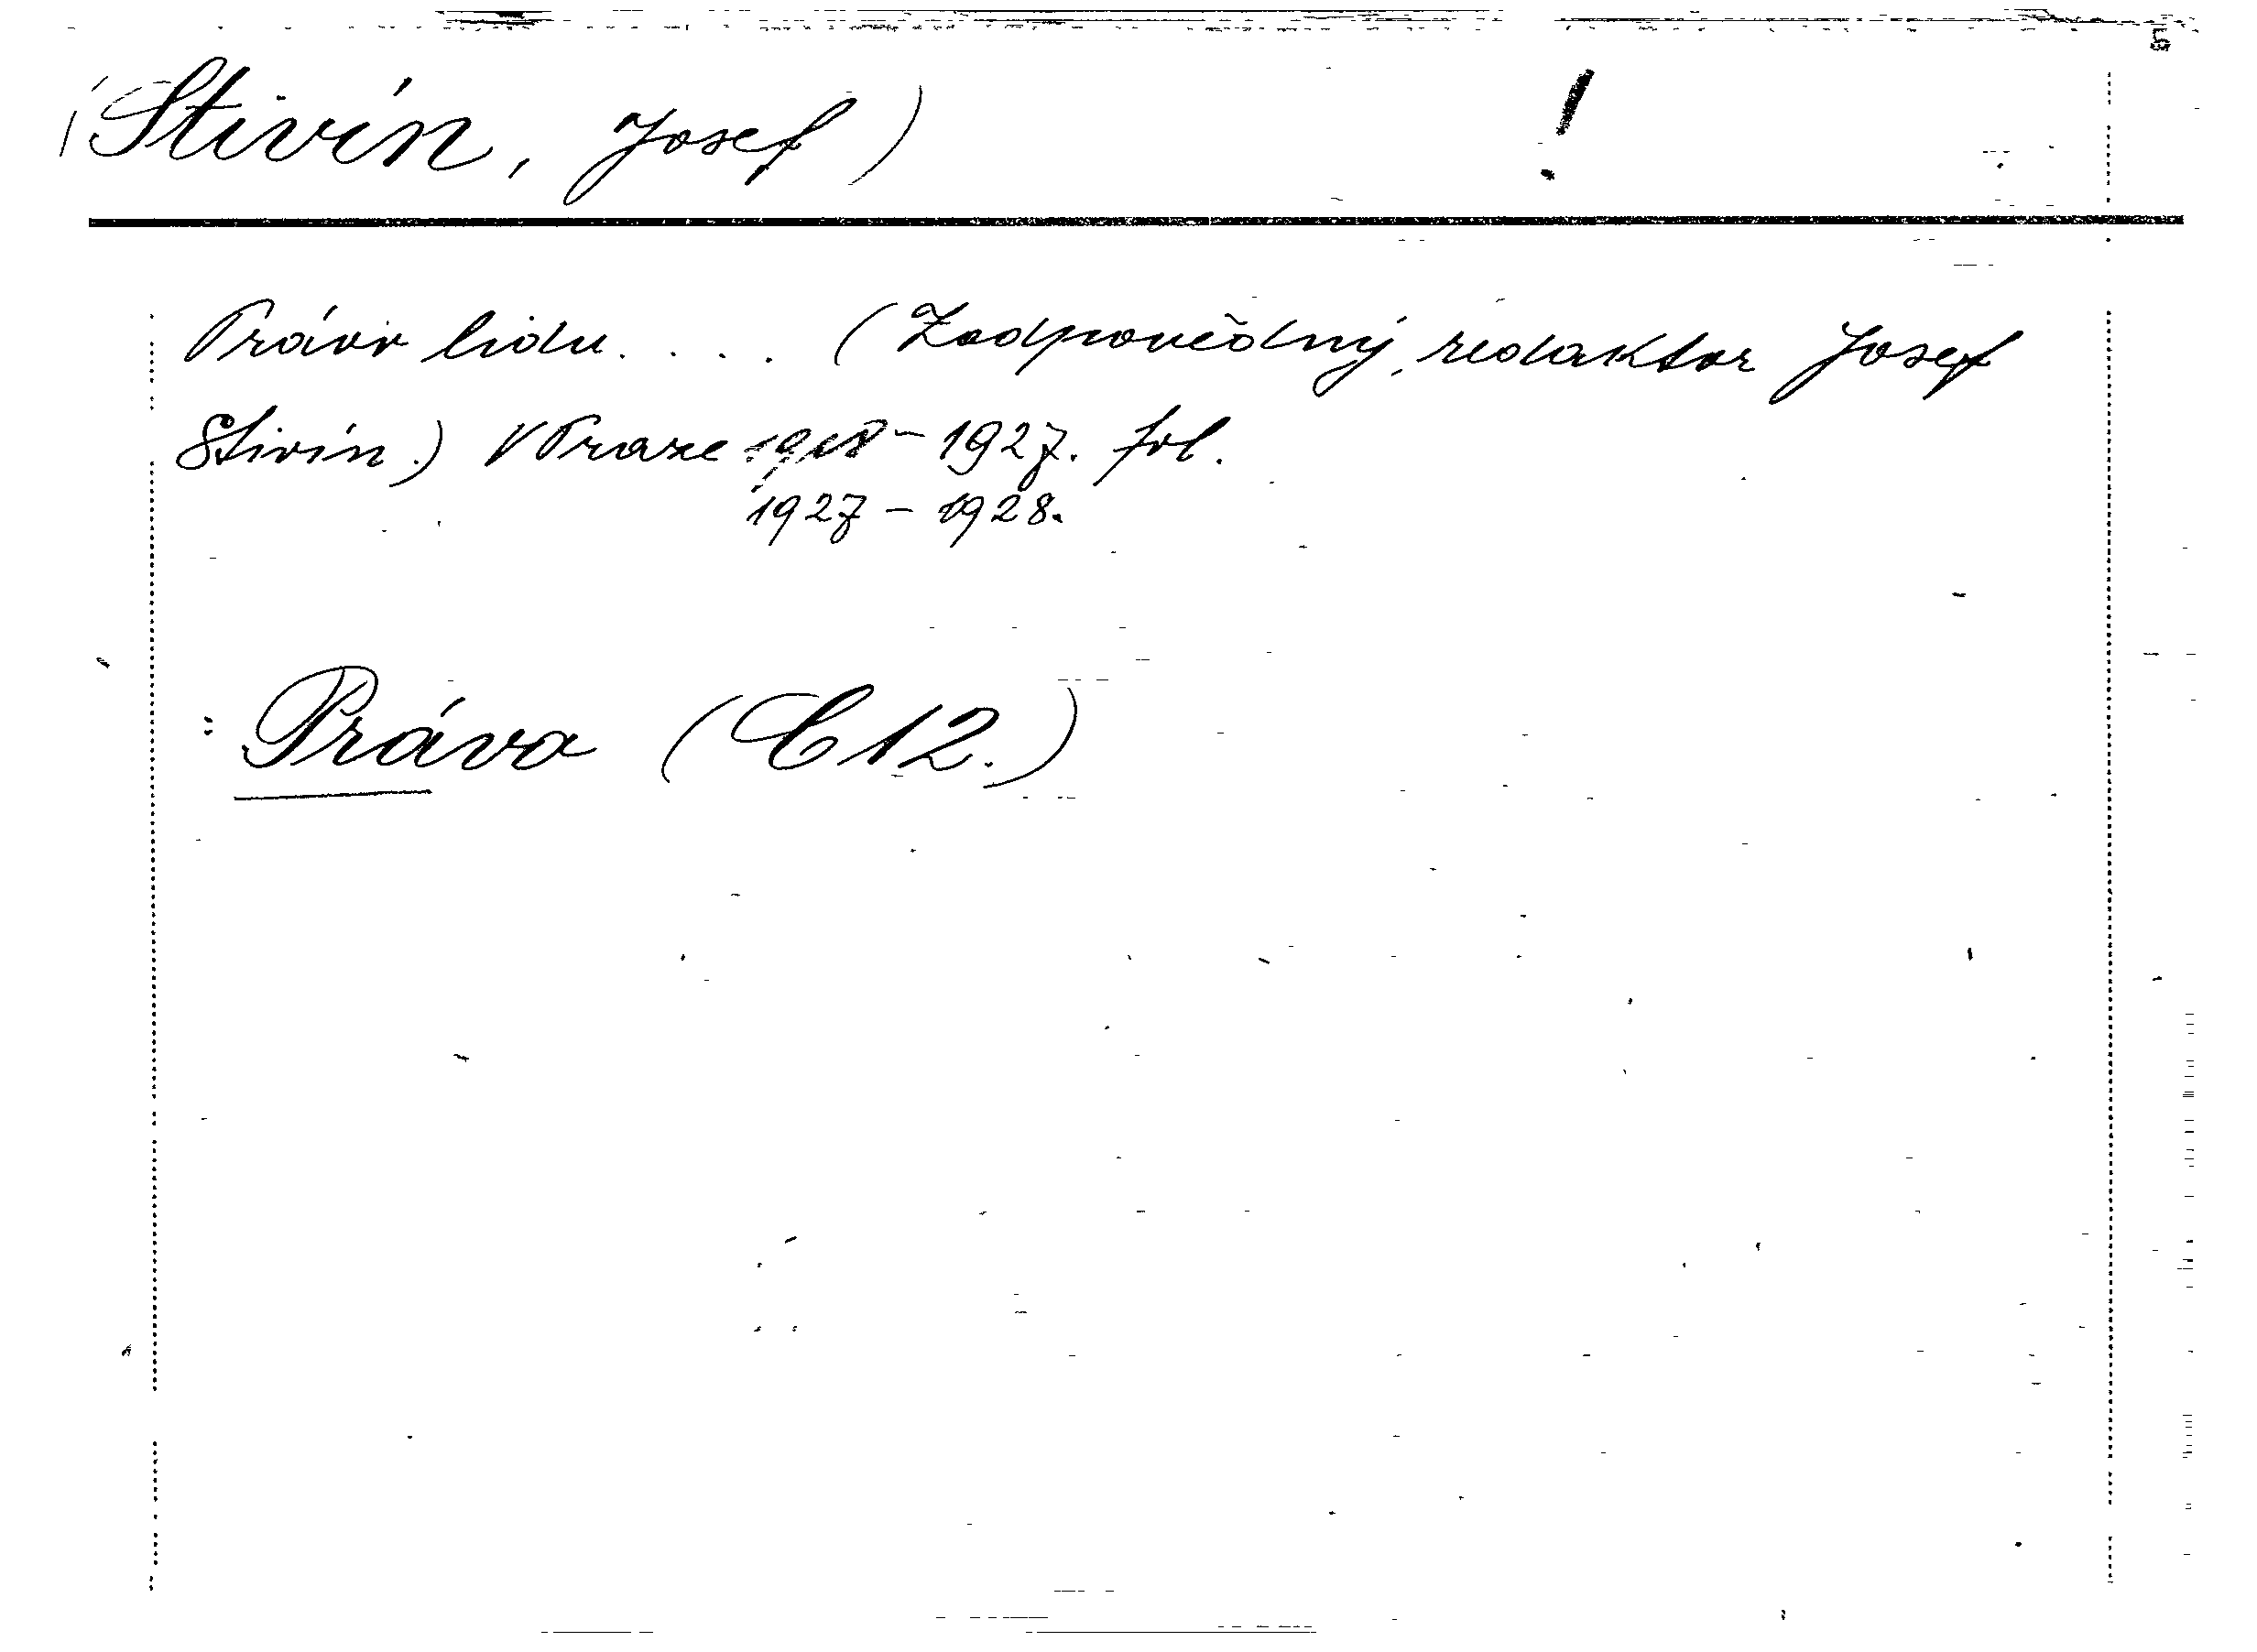 (Stivín, Josef) !
Právo lidu. . . . (Zodpovědný redaktor Josef
Stivín.) V Praze 1918-1927. fol.
1927-1928.
: Práva (C12.)